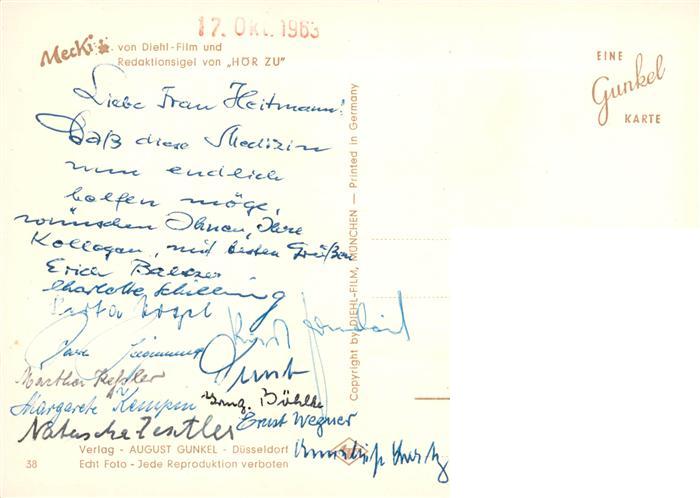 17. Okt. 1963
Mecki
von Diehl-Film und
Redaktionsigel von „HÖR ZU"
EINE
Gunkel
KARTE
Liebe Frau Heitmann!
Daß diese Medizin
nun endlich
helfen möge,
wünschen Ihnen, Ihre
Kollegen, mit besten Grüßen
Erich Balzer
Charlotte Schilling
Kurt
Martha Keßler
Margarete Kempen
Böhlke
Ernst Wegner
Natascha
Verlag - AUGUST GUNKEL - Düsseldorf
38 Echt Foto - Jede Reproduktion verboten
Copyright by DIEHL-FILM, MÜNCHEN — Printed in Germany